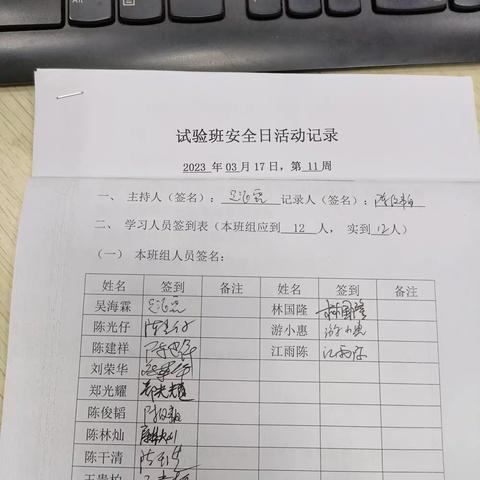 Alt
试验班安全日活动记录
2023 年 03 月 17 日，第 11 周
一、 主持人（签名）：吴海霖 记录人（签名）：陈俊韬
二、 学习人员签到表（本班组应到 12 人， 实到 12 人）
（一） 本班组人员签名：
姓名 签到 备注 姓名 签到 备注
吴海霖 吴海霖 林国隆 林国隆
陈光仔 陈光仔 游小惠 游小惠
陈建祥 陈建祥 江雨陈 江雨陈
刘荣华
郑光耀 郑光耀
陈俊韬 陈俊韬
陈林灿
陈干清 陈干清
王贵柏